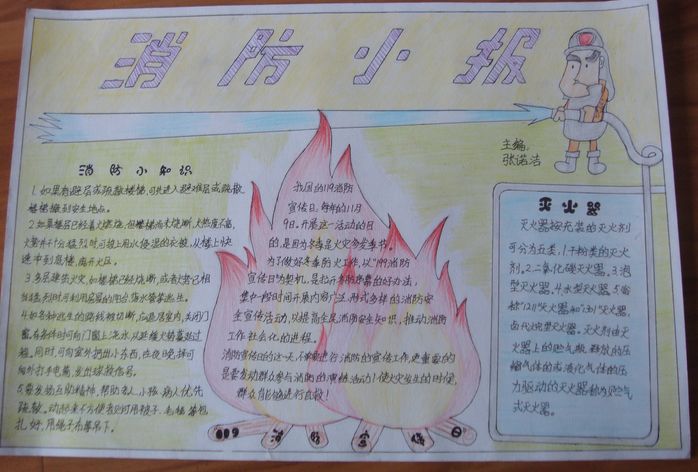 消防小报
主编:
张诺洁
消防小知识
1.如果有避层或疏散楼梯,可先进入避难层或疏散
楼梯撤到安全地点。
2.如果楼层已经着火燃烧,但楼梯尚未烧断,火势
并不十分猛烈时,可披上用水浸湿的衣被,从楼上快
速冲到底楼,离开火区。
3.多层建筑火灾,如楼梯已经烧断,或者火势已相
当猛烈时可利用房屋的阳台落水管等逃生。
4.如各种逃生的路线被切断,应退居室内,关闭门
窗。有条件时可向门窗上浇水,以延缓火势蔓延过
程。同时,可向室外扔出小东西,在夜晚则可
向外打手电筒,发出求救信号。
5.要发扬互助精神,帮助老人,小孩,病人优先
疏散。
扎好,用绳子布条吊下。
我国的119消防
宣传日,每年的11月
9日。开展这一活动的目
的,是因为冬季是火灾多发季节。
为了做好冬季防火工作,以“119消防
宣传日”为契机,
集中一段时间开展内容广泛,形式多样的消防安
全宣传活动,以提高全民消防安全知识,推动消防
工作社会化的进程。
消防宣传日的这一天,不单单进行消防的宣传工作,更重要的
是要发动群众参与消防的演练活动!使火灾发生的时候,
群众能够进行自救!
119消防宣传日
灭火器
灭火器按充装的灭火剂
可分为五类,1.干粉类的灭火
剂。2.二氧化碳灭火器。3.泡
型灭火器。4.水型灭火器。5.俗
称“1211”灭火器和“1301”灭火器,
卤代烷型灭火器。灭火剂由灭
火器上的贮气瓶释放的压
缩气体的或液化气体的压
力驱动的灭火器称为贮气
式灭火器。